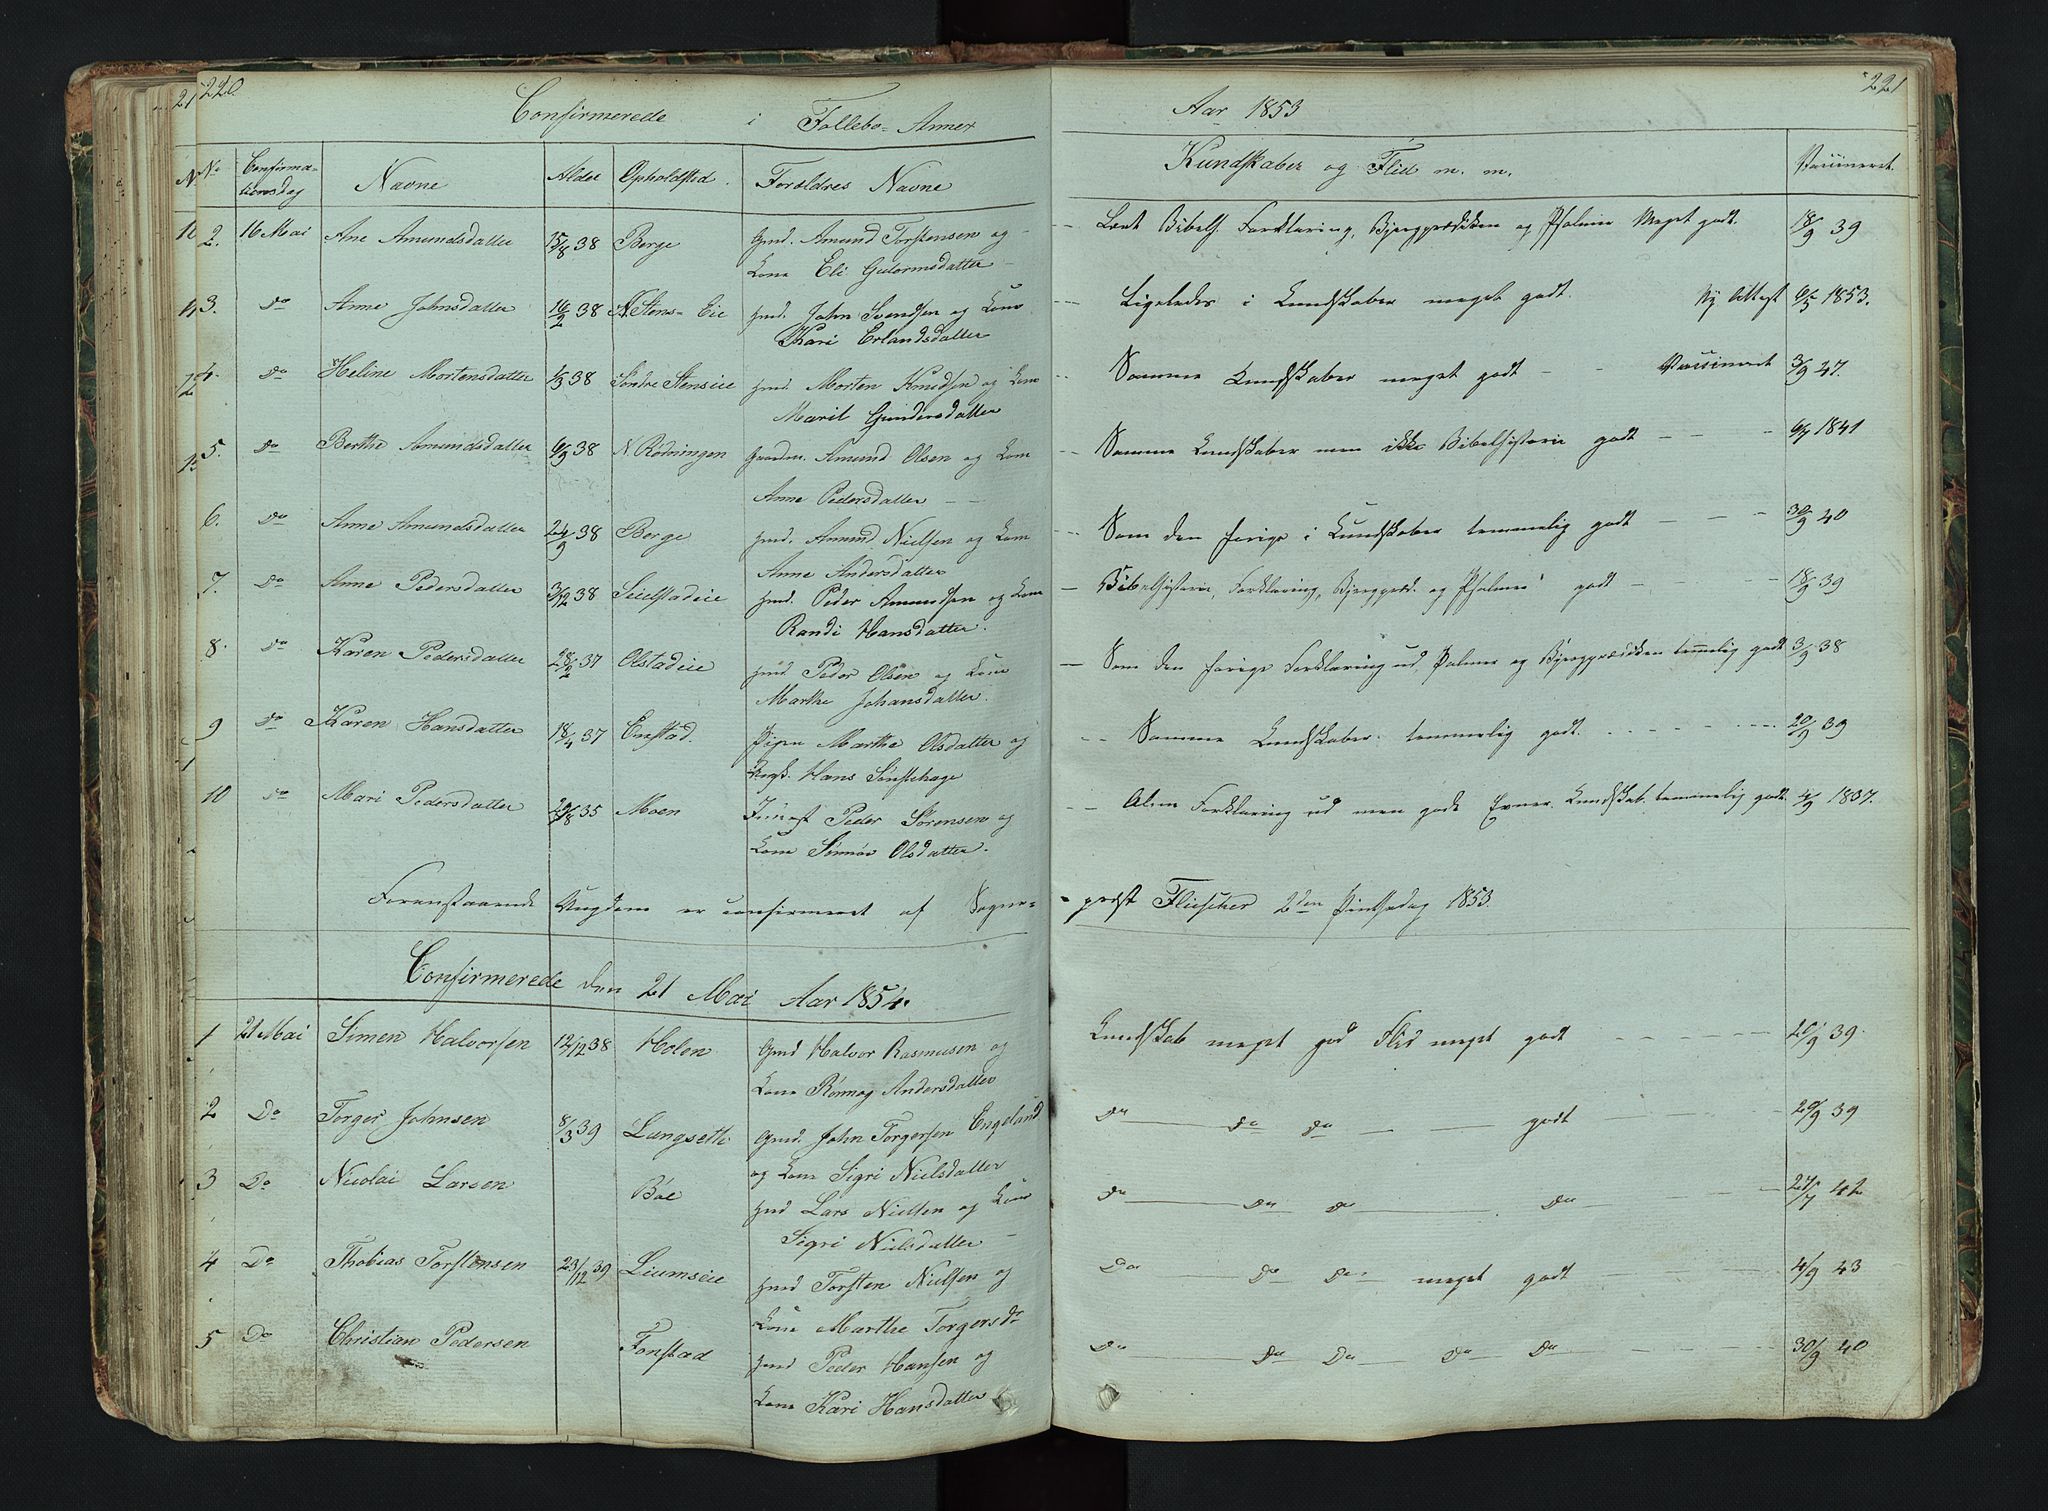 220.
221
Confirmerede i Follebo-Annex
Aar 1853
No Confirmationsdag Navne Alder Opholdsted. Forældres Navne
Kundskaber og Flid m. m. Vaccineret.
2. 16 Mai Ane Amundsdatter 15/8 38 Berge Gmd. Amund Torstensen og
Kone Eli Guttormsdatter
Læst Bibelh. Forklaring, Bjergprædiken og Psalmer Meget godt. 18/9 39
3. Do Anne Johnsdatter 16/2 38 N. Stens-Eie Hmd. John Svendsen og Kone
Kari Erlandsdatter
Ligeledes i Kundskaber meget godt. Ny Attest 6/5 1853.
4. Do Heline Mortensdatter 38 Søndre Stenseie Hmd. Morten Knudsen og Kone
Marit Gundersdatter
Samme Kundskaber meget godt - - Vaccineret 3/9 47.
5. Do Berthe Amundsdatter 6/9 38 N. Rødningen Gaardm. Amund Olsen og Kone
Anne Pedersdatter
Samme Kundskaber men ikke Bibelhistorie godt - - - 1841
6. Do Anne Amundsdatter 24/9 38 Berge Hmd. Amund Nielsen og Kone
Anne Andersdatter
Som den forige i Kundskaber temmelig godt - - - 30/9 40
7. Do Anne Pedersdatter 3/12 38 Seielstadeie Hmd. Peder Amundsen og Kone
Randi Hansdatter.
Bibelhistorie, Forklaring, Bjergpræd. og Psalmer godt - - - 18/9 39
8. Do Karen Pedersdatter 28/2 37 Olstadeie Hmd Peder Olsen og Kone
Marthe Johansdatter.
Som den forige Forklaring ud Psalmer og Bjergprædiken temmelig godt 3/9 38
9 Do Karen Hansdatter 18/4 37 Enstad. Pigen Marthe Olsdatter og
Hans Sønstehage
Samme Kundskaber temmelig godt. 20/9 39
10 Do Mari Pedersdatter 29/8 35 Moen Peder Sørensen og
Kone Olsdatter.
Forklaring ud men gode Evner. Kundskab. temmelig godt. 4/9 1837.
Foranstaaende Ungdom er confirmeret af Sogne-
præst Fleischer 2den Pintsedag 1853.
Confirmerede den 21 Mai Aar 1854.
1 21 Mai Simen Halvorsen 12/12 38 Holen Gmd Halvor Rasmusen og
Kone Rønnog Andersdatter
Kundskab meget god Flid meget godt 20/9 39.
2 Do Torger Johnsen 8/3 39 Langseth Gmd. John Torgersen Engeland
og Kone Sigri Nielsdatter
Do Do Do godt 20/9 39
3 Do Nicolai Larsen Bøe Hmd Lars Nielsen og Kone
Sigri Nielsdatter
Do Do Do Do 27/7 42
4 Do Thobias Torstensen 23/12 39 Liumseie Hmd Torsten Nielsen og
Kone Marthe Torgersdr
Do Do Do meget godt 4/9 43
5 Do Christian Pedersen Fonstad Hmd Peder Hansen og
Kone Kari Hansdatter
Do Do Do Do Do 30/9 40